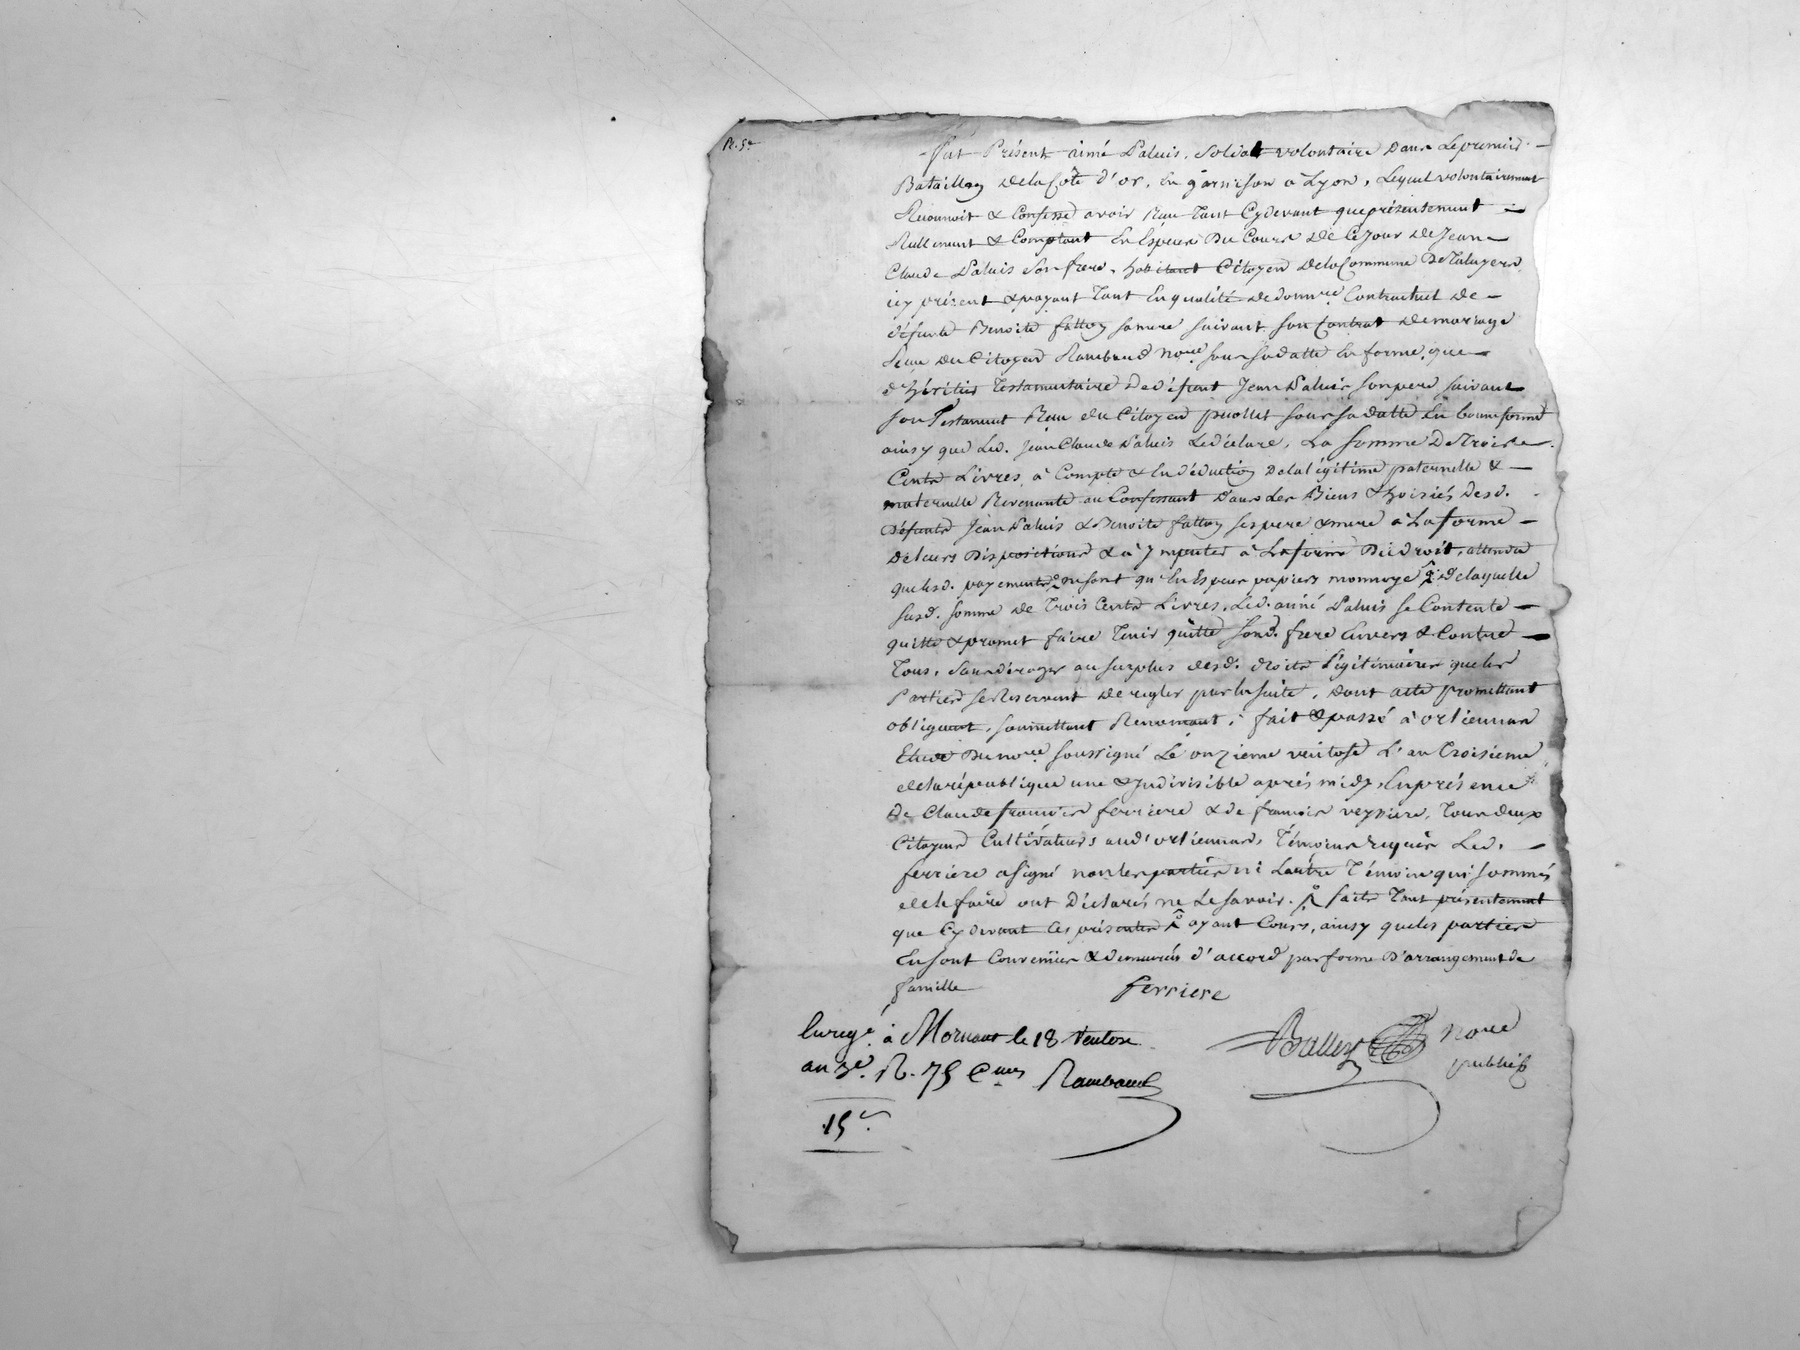 Fut Présent aimé Paluis, Soldat volontaire Dans Le premier
Bataillon De la Côte d'or, En garnison à Lyon, Lequel volontairement
Reconnoit & Confesse avoir Reçu Tant Cydevant que présentement
Réellement & Comptant En Espèces Du Cours De Ce Jour De Jean
Claude Paluis Son frere, habitant Citoyen De la Commune De Taluyers
icy présent & payant Tant En qualité de donnre Contractuel De
défunte Benoite fallon sa mere suivant son Contrat De mariage
Reçu Du Citoyen Rambaud nore sous sa datte En forme, que
d'héritier Testamentaire De défunt Jean Paluis son pere suivant
son Testament Reçu du Citoyen sous sa datte En bonne forme
ainsy que Led. Jean Claude Paluis Le déclare, La Somme De Trois
Cents Livres, à Compte & En déduction De la légitime paternelle &
maternelle Revenante au Confessant Dans Les Biens & hoiries Desd.
Défunts Jean Paluis & Benoite fallon ses pere & mere à La forme
De leurs Dispositions & à y imputer à La forme Du Droit, attendu
que lesd. payements ne sont qu'En Espèces papiers monnoye De laquelle
susd. Somme De Trois Cents Livres, Led. aimé Paluis se Contente
quitte & promet faire Tenir quitte sond. frere Envers & Contre
Tous, Sans déroger au surplus desd. droits Légitimaires que les
Parties se Reservent De regler par la suite, Dont acte promettant
obligeant, soumettant Renonçant, fait & passé à orliennas
Etude Du nore soussigné Le onzieme ventose L'an Troisieme
de la république une & Indivisible après midy, En présence
De Claude françois ferriere & de françois veyssiere, Tous deux
Citoyens Cultivateurs aud. orliennas, Témoins requis Led.
ferriere a signé non les parties ni L'autre Témoin qui sommés
de le faire ont Déclarés ne Le savoir. faits Tant présentement
que Cy devant Les présentes ayant Cours, ainsy que les parties
En sont Convenües & demeurés d'accord par forme D'arrangement de
famille
ferriere
Enregé à Mornant le 18 Ventose
an 3e. R. 75 Cmes Rambaud
15 s.
nore
public